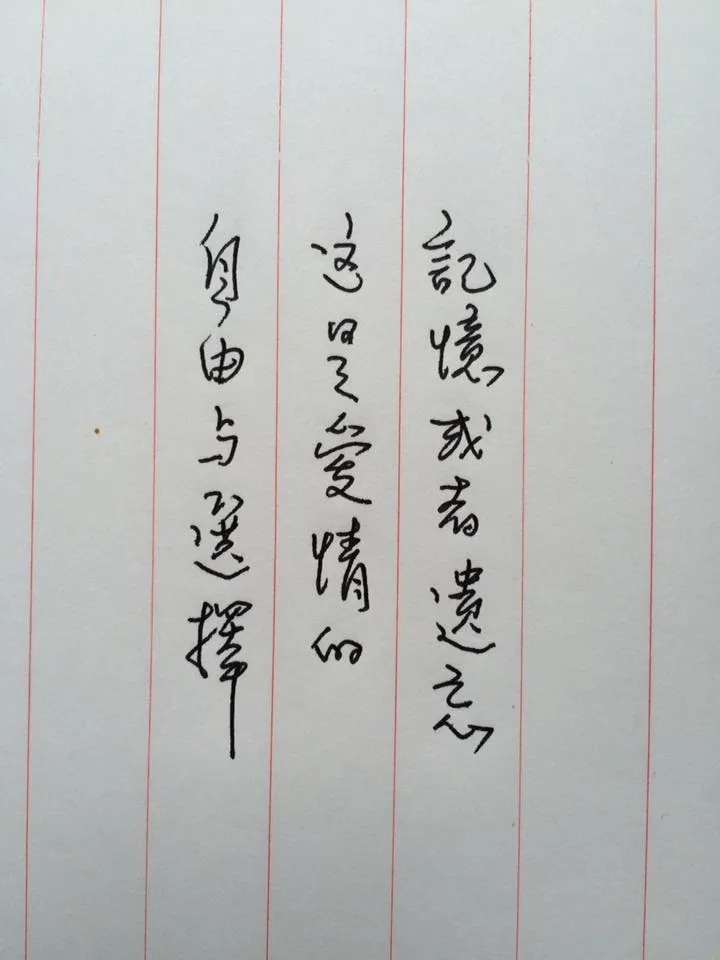 記憶或者遺忘
这是愛情的
自由与選擇